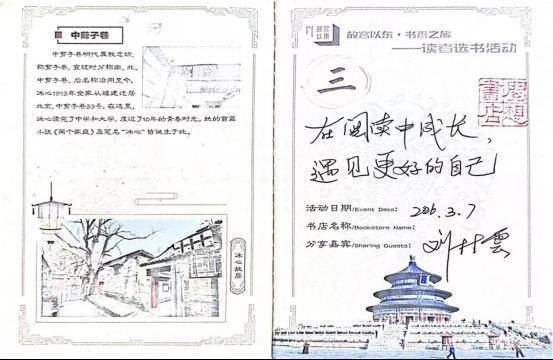 中剪子巷
中剪子巷明代属教忠坊,
称剪子巷,宣统时分称南、北、
中剪子巷,后名称沿用至今。
冰心1913年全家从福建迁居
北京,中剪子巷33号。在这里,
冰心读完了中学和大学,度过了10年的青春时光。她的首篇
小说《两个家庭》及笔名“冰心”皆诞生于此。
冰心故居
故宫以东
故宫以东·书香之旅
——读者选书活动
三
书店
在阅读中成长,
遇见更好的自己
活动日期/Event Date:
3.7
书店名称/Bookstore Name:
分享嘉宾/Sharing Guests: